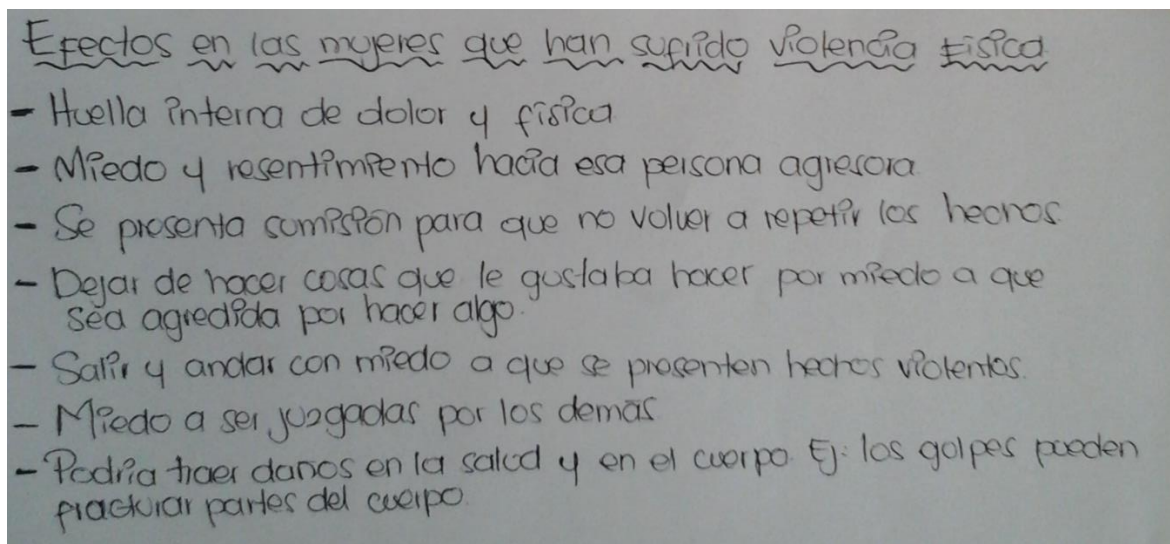 Efectos en las mujeres que han sufrido violencia física
- Huella interna de dolor y física
- Miedo y resentimiento hacia esa persona agresora.
- Se presenta sumisión para que no volver a repetir los hechos
- Dejar de hacer cosas que le gustaba hacer por miedo a que
sea agredida por hacer algo.
- Salir y andar con miedo a que se presenten hechos violentos.
- Miedo a ser juzgadas por los demás
- Podría traer danos en la salud y en el cuerpo. Ej: los golpes pueden
fracturar partes del cuerpo.